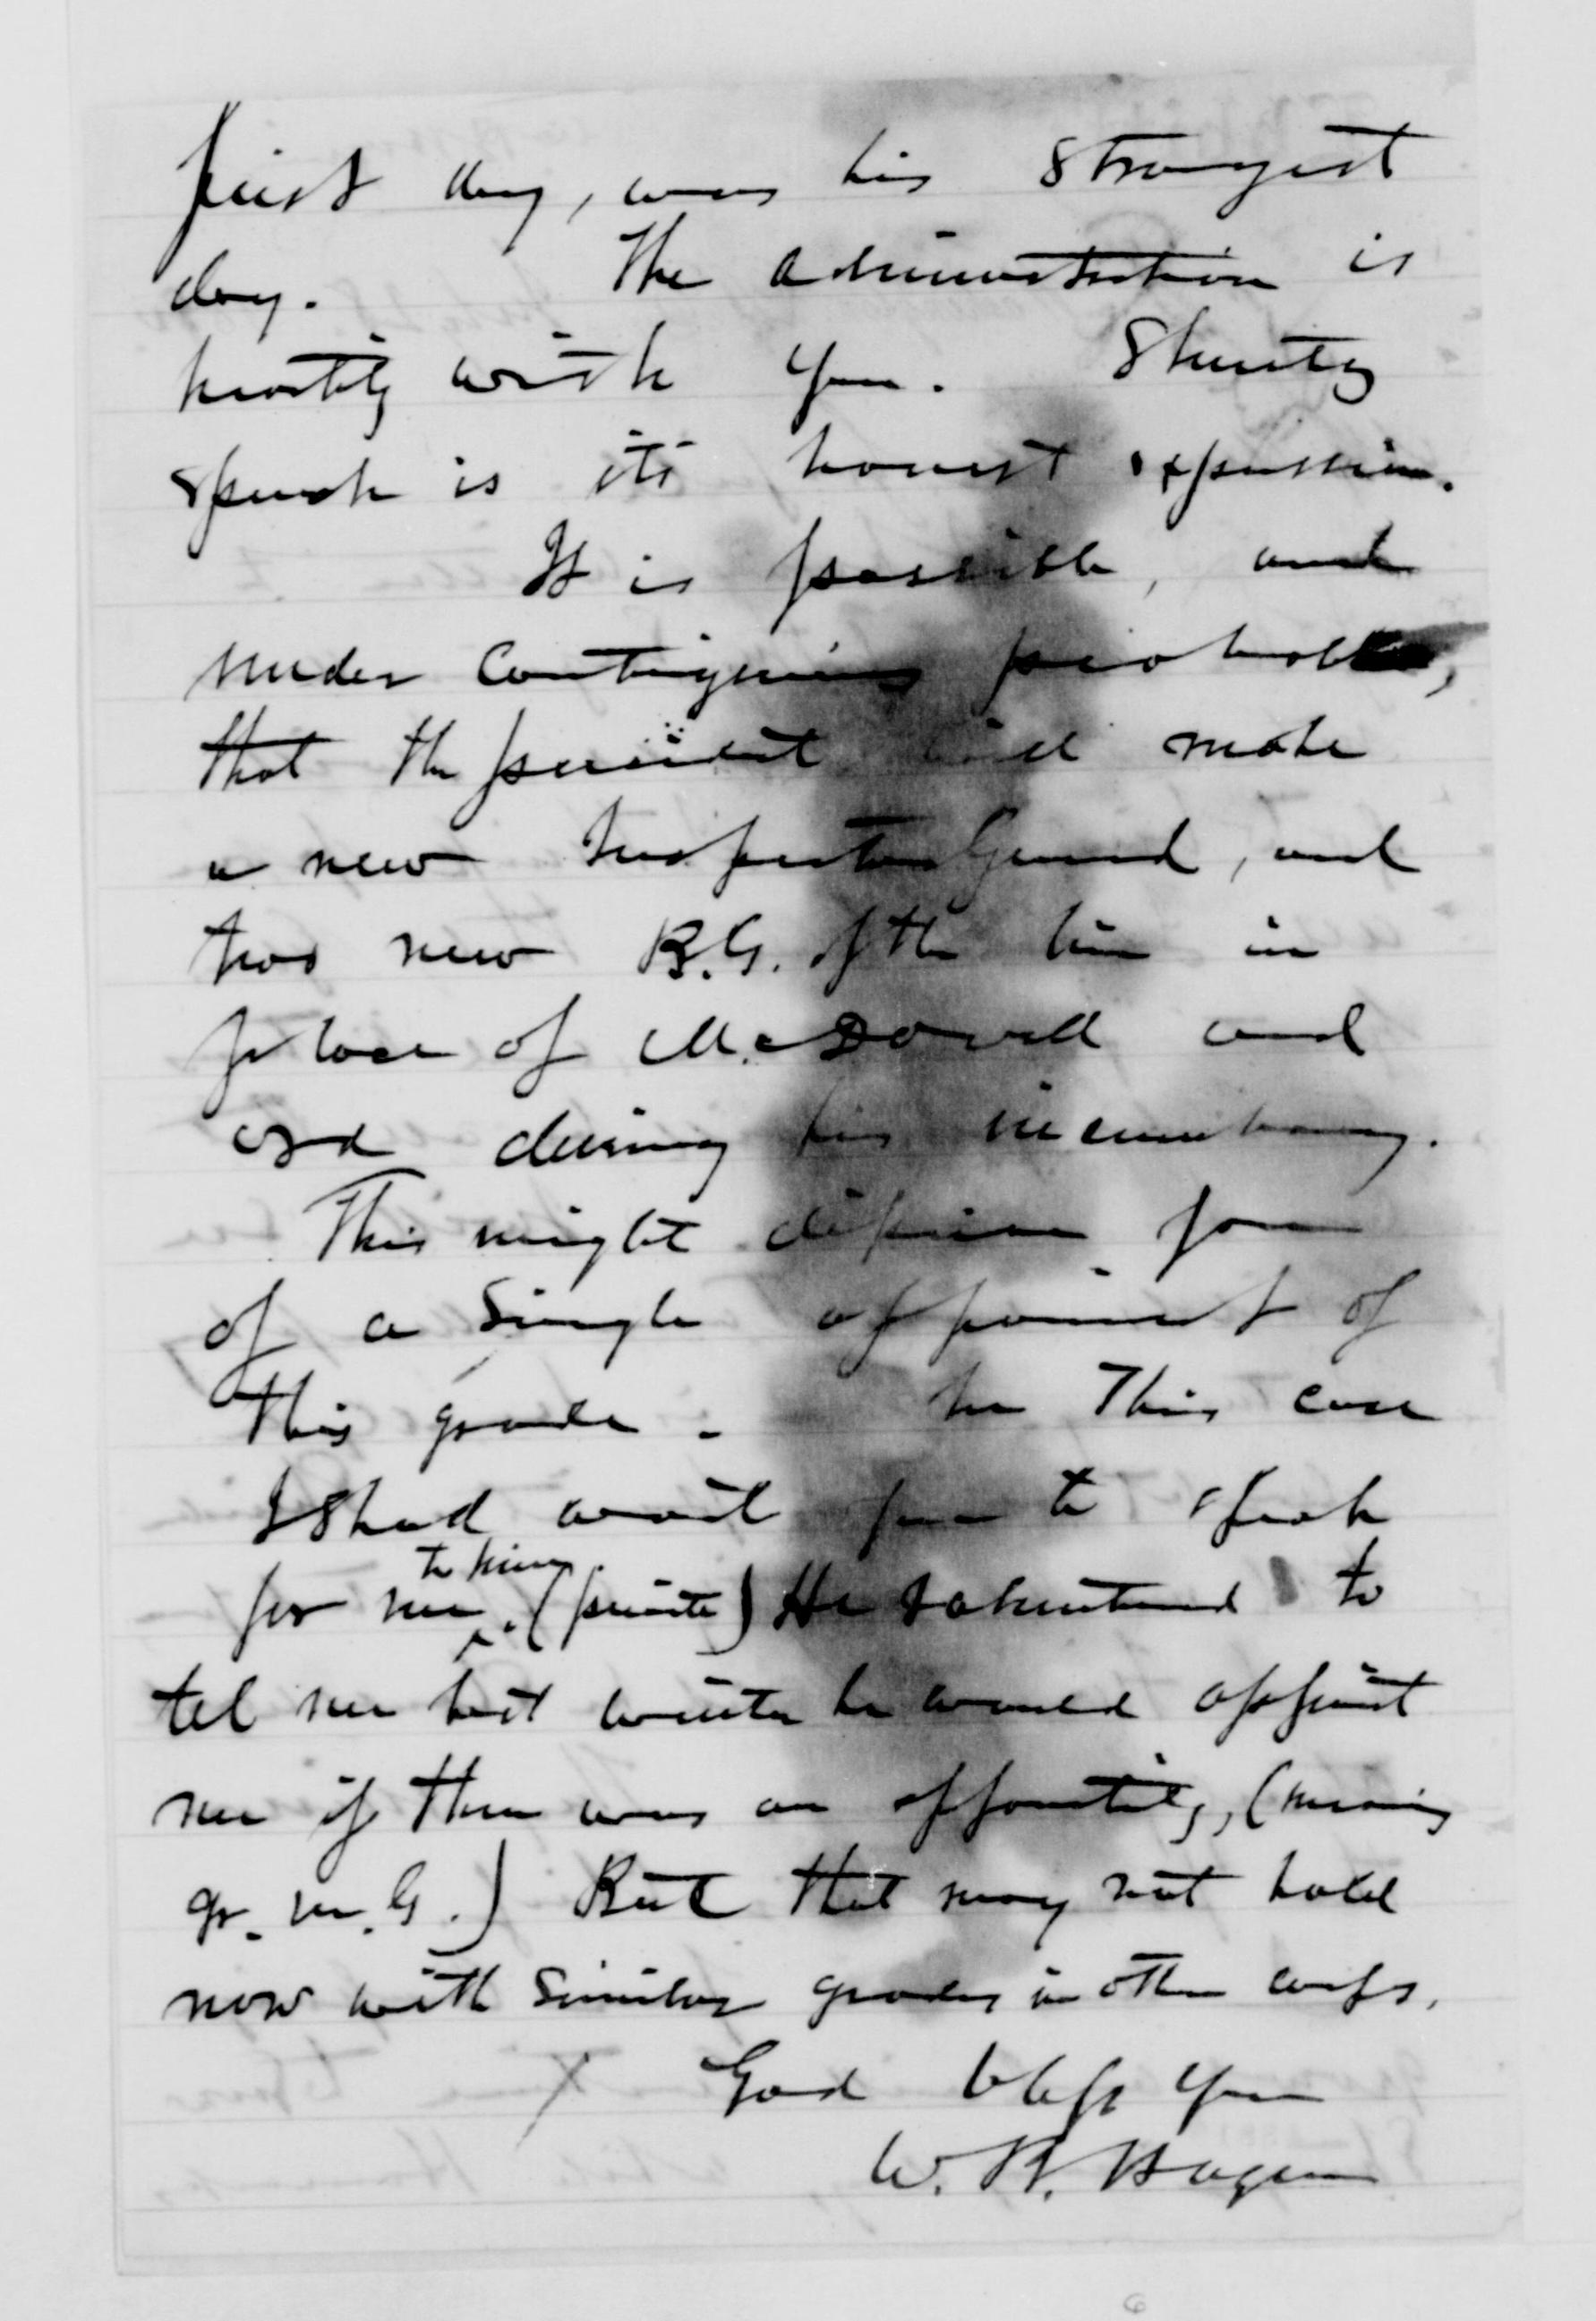 first day, was his strongest
day. The administration is
heartily with you.
speech is its honest expression.
It is possible, and
under contingencies probable,
that the president will make
a new Inspector General, and
two new B.G. of the line in
place of McDowell and
Ord during his incumbency.
This might dispose you
of a single appoinmt of
this grade. In this case
I shad want you to speak
for me to him. (private) He volunteered to
tel me last winter he would appoint
me if there was an opportunity, (meaning
qr. m. G.) But that may not hold
now with similar grades in other corps.
God bless you
W. B. Hazen